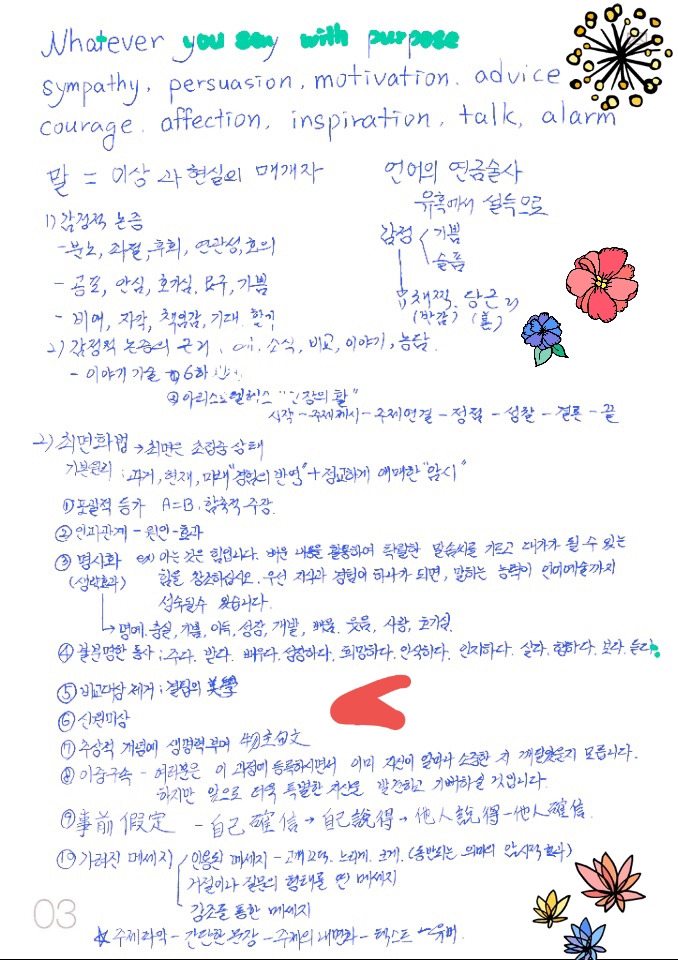 Whatever you say with purpose
sympathy, persuasion, motivation. advice
courage. affection, inspiration, talk, alarm
말 = 이상과 현실의 매개자
언어의 연금술사
유혹에서 설득으로
1) 감정적 논증
감정 기쁨
슬픔
- 분노, 좌절, 후회, 연관성, 호의
- 공포, 안심, 호기심, 욕구, 기쁨
채찍, 당근
(반감)
- 비애, 자각, 책임감, 기대, 활기
2) 감정적 논증의 근거 : 예, 소식, 비교, 이야기, 농담.
- 이야기 기술 ① 6하
②
시작 - 주제제시 - 주제연결 - 정립 - 성찰 - 결론 - 끝
2) 최면화법 → 최면은 초집중 상태
기본원리 : 과거, 현재, 미래 "경험의 반영" + 정교하게 애매한 "암시"
① 포괄적 등가 A=B. 함축적 주장.
② 인과관계 - 원인 - 효과
③ 명시화 ex) 아는 것은 힘입니다. 배운 내용을 활용하여 탁월한 말솜씨를 기르고 대가가 될 수 있는
(생략효과) 힘을 창조하십시오. 우선 지식과 경험이 하나가 되면, 말하는 능력이 언어예술까지
성숙될 수 있습니다.
→ 명예. 충실, 기쁨, 이득, 성장, 개발, 배움, 웃음, 사랑, 호기심.
④ 불분명한 동사 : 주다. 받다. 배우다. 성장하다. 희망하다. 인식하다. 인지하다. 싫다. 행하다. 보다. 듣다.
⑤ 비교대상 제거 : 결핍의 美學
⑥
⑦ 추상적 개념에 생명력 부여
⑧ 이중구속 - 여러분은 이 과정에 등록하시면서 이미 자신이 얼마나 소중한 지 깨달았는지 모릅니다.
하지만 앞으로 더욱 특별한 자신을 발견하고 기뻐하실 것입니다.
⑨ 事前假定 - 自己確信 → 自己說得 → 他人說得 - 他人確信.
⑩ 가려진 메세지 인용된 메세지 - 느리게. 크게. (동반되는 의미의 암시적 효과)
거절이나 질문의 형태를 띤 메세지
강조를 통한 메세지
☆ 주제파악 - 간단한 문장 - 주제의 내면화 - 텍스트
03